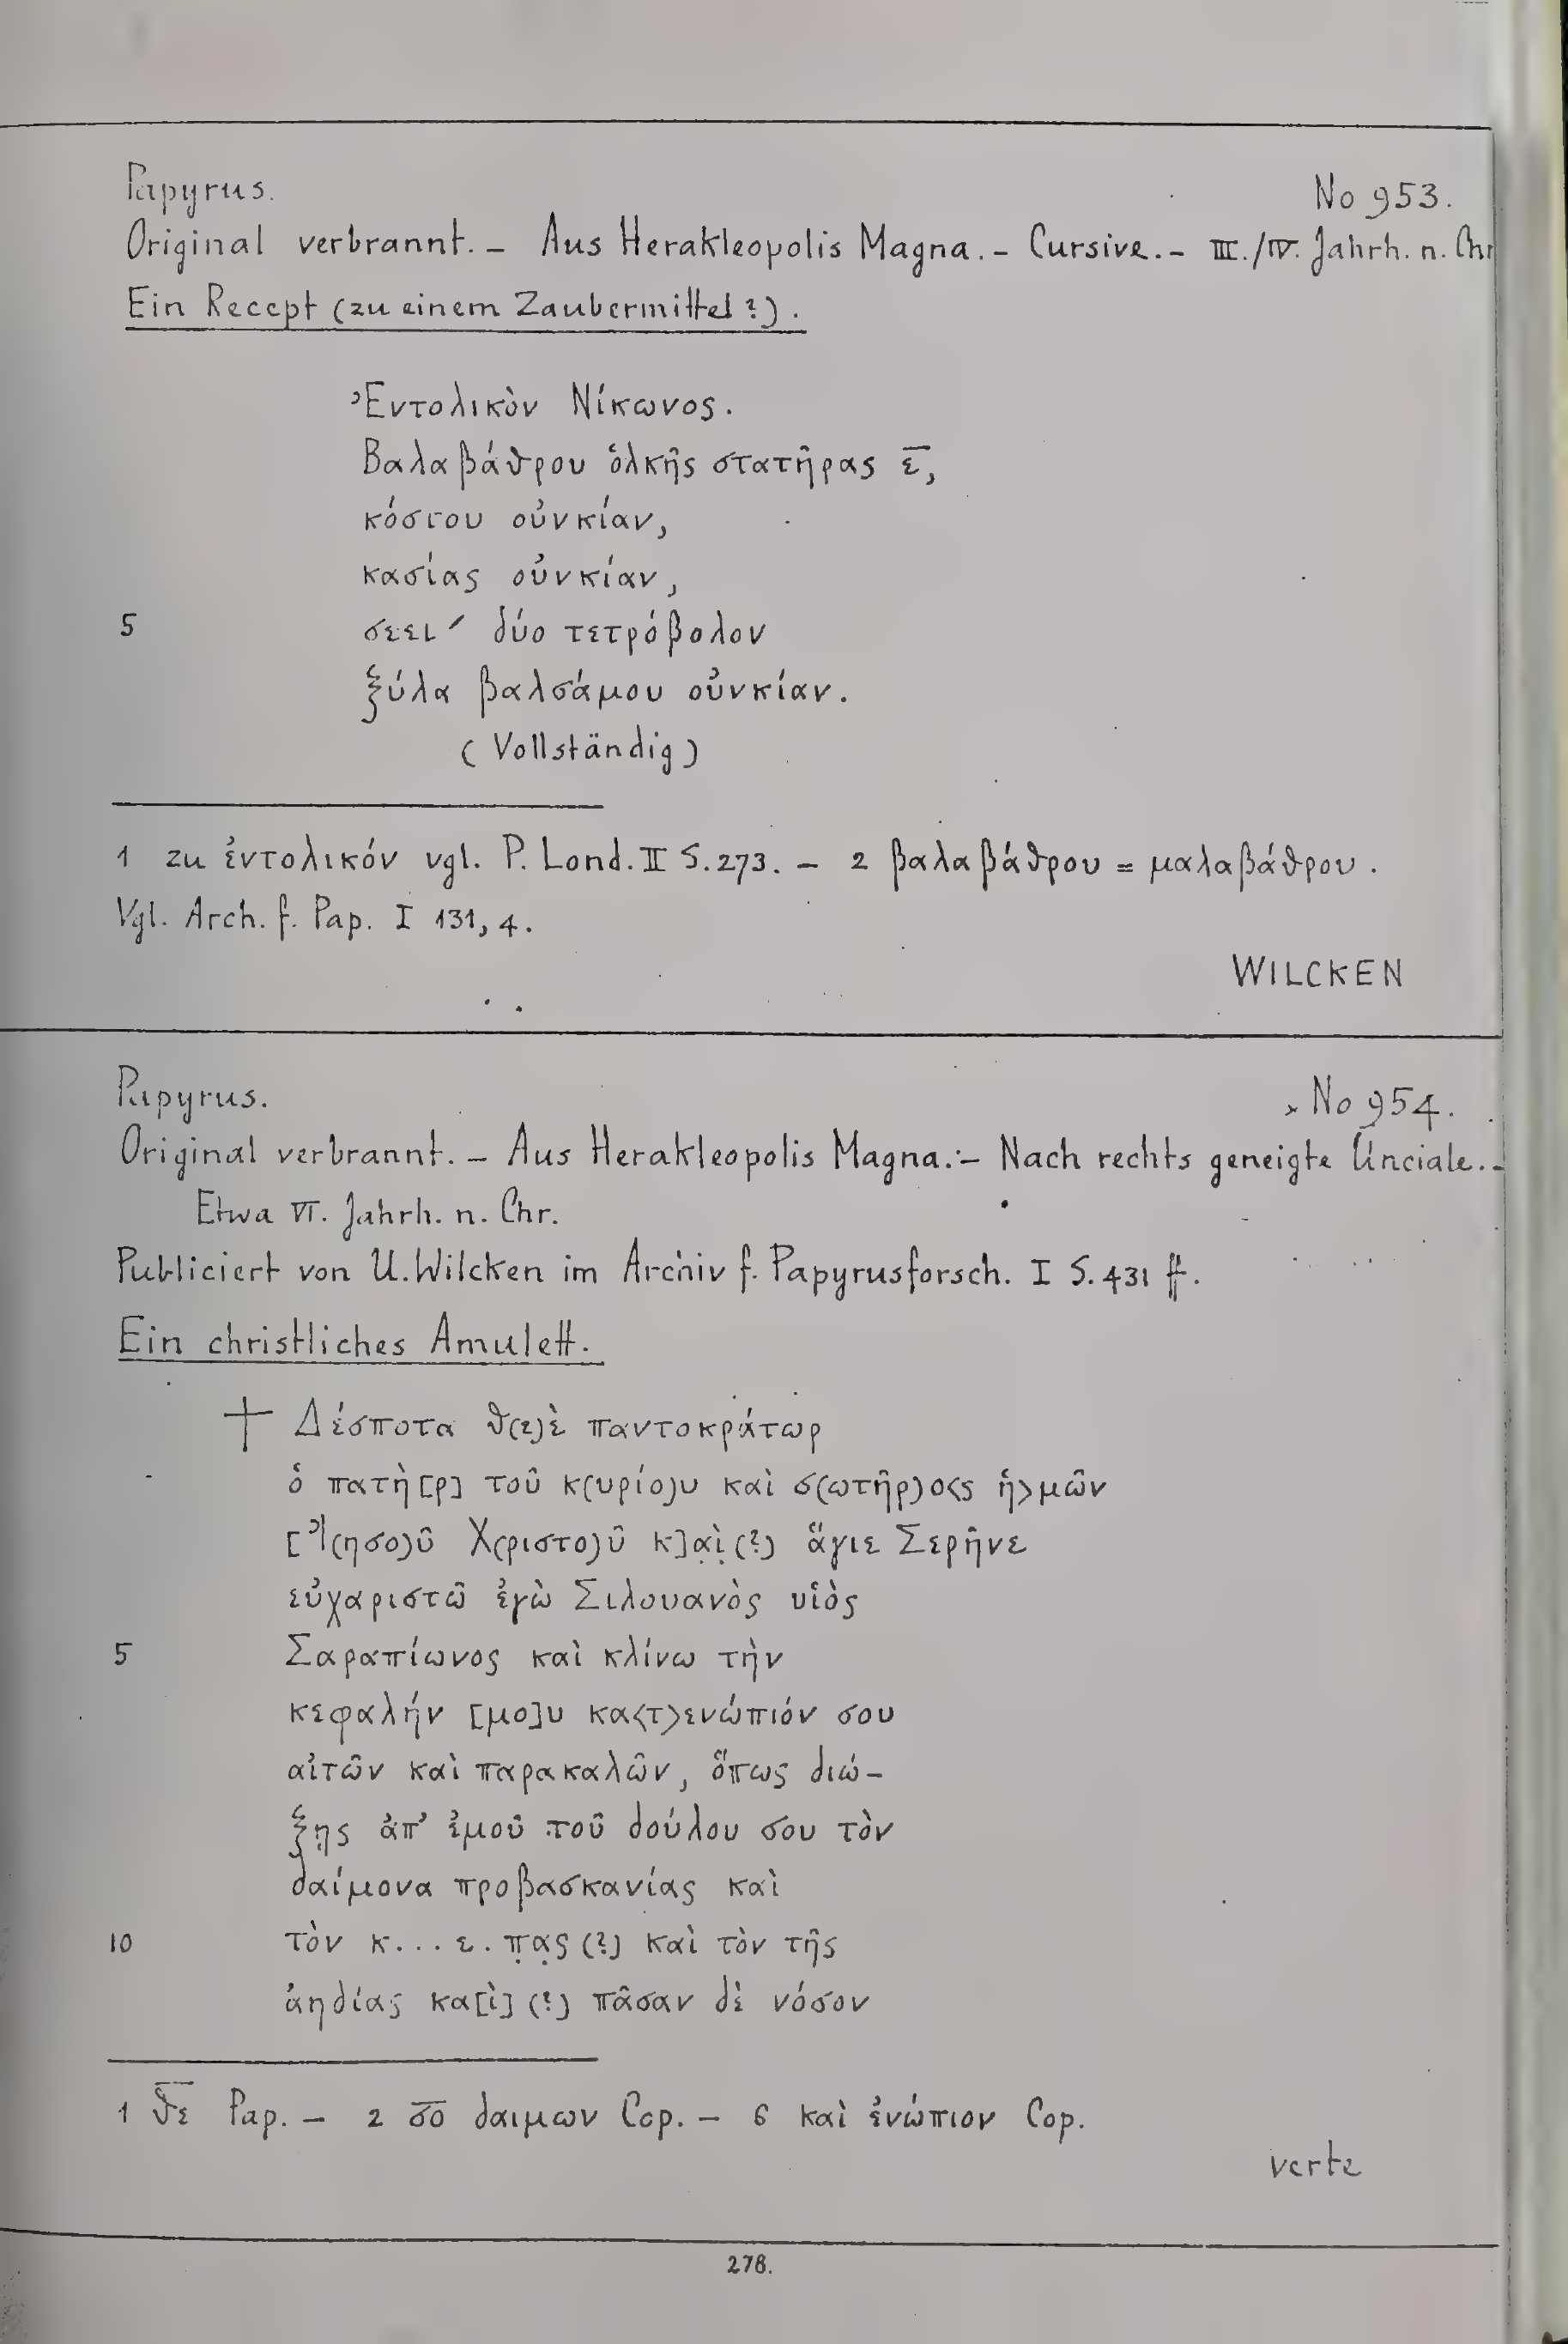 Papyrus.
No 953.
Original verbrannt. — Aus Herakleopolis Magna. — Cursive. — III./IV. Jahrh. n. Chr
Ein Recept (zu einem Zaubermittel?).
Ἐντολικὸν Νίκωνος.
Βαλαβάθρου ὁλκῆς στατῆρας ε̅,
κόστου οὐνκίαν,
κασίας οὐνκίαν,
5 σεει´ δύο τετρόβολον
ξύλα βαλσάμου οὐνκίαν.
(Vollständig)
1 zu ἐντολικόν vgl. P. Lond. II S. 273. — 2 βαλαβάθρου = μαλαβάθρου.
Vgl. Arch. f. Pap. I 131, 4.
WILCKEN
Papyrus.
No 954.
Original verbrannt. — Aus Herakleopolis Magna. — Nach rechts geneigte Unciale. —
Etwa VI. Jahrh. n. Chr.
Publiciert von U. Wilcken im Archiv f. Papyrusforsch. I S. 431 ff.
Ein christliches Amulett.
† Δέσποτα θ(ε)ὲ παντοκράτωρ
ὁ πατὴ[ρ] τοῦ κ(υρίο)υ καὶ σ(ωτῆρ)ο<ς ἡ>μῶν
[Ἰ(ησο)ῦ Χ(ριστο)ῦ κ]α̣ὶ̣ (?) ἅγιε Σερῆνε
εὐχαριστῶ ἐγὼ Σιλουανὸς υἱὸς
5 Σαραπίωνος καὶ κλίνω τὴν
κεφαλήν [μο]υ κα<τ>ενώπιόν σου
αἰτῶν καὶ παρακαλῶν, ὅπως διώ-
ξῃς ἀπ' ἐμοῦ τοῦ δούλου σου τὸν
δαίμονα προβασκανίας καὶ
10 τὸν κ...ε.π̣α̣ς (?) καὶ τὸν τῆς
ἀηδίας κα[ὶ] (?) πᾶσαν δὲ νόσον
1 θ̅ε̅ Pap. — 2 σ̅ο̅ δαιμων Cop. — 6 καὶ ἐνώπιον Cop.
verte
278.